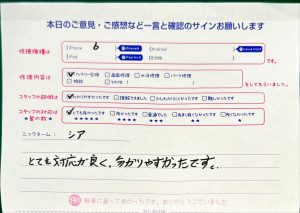 本日のご意見・ご感想など一言と確認のサインお願いします
修理機種は
iPhone 6
Android
iPad
その他
修理内容は
バッテリー交換 画面修理 水没修理 パーツ修理
その他
をしてもらいました。
スタッフの説明は
分かりやすかったです 理解できました 少し分かりにくかったです 難しかったです
スタッフの対応は
★星の数
とても良かったです 良かったです 普通でした
ニックネーム： シア
とても対応が良く、分かりやすかったです。
無事に直って良かったです。ありがとうございました